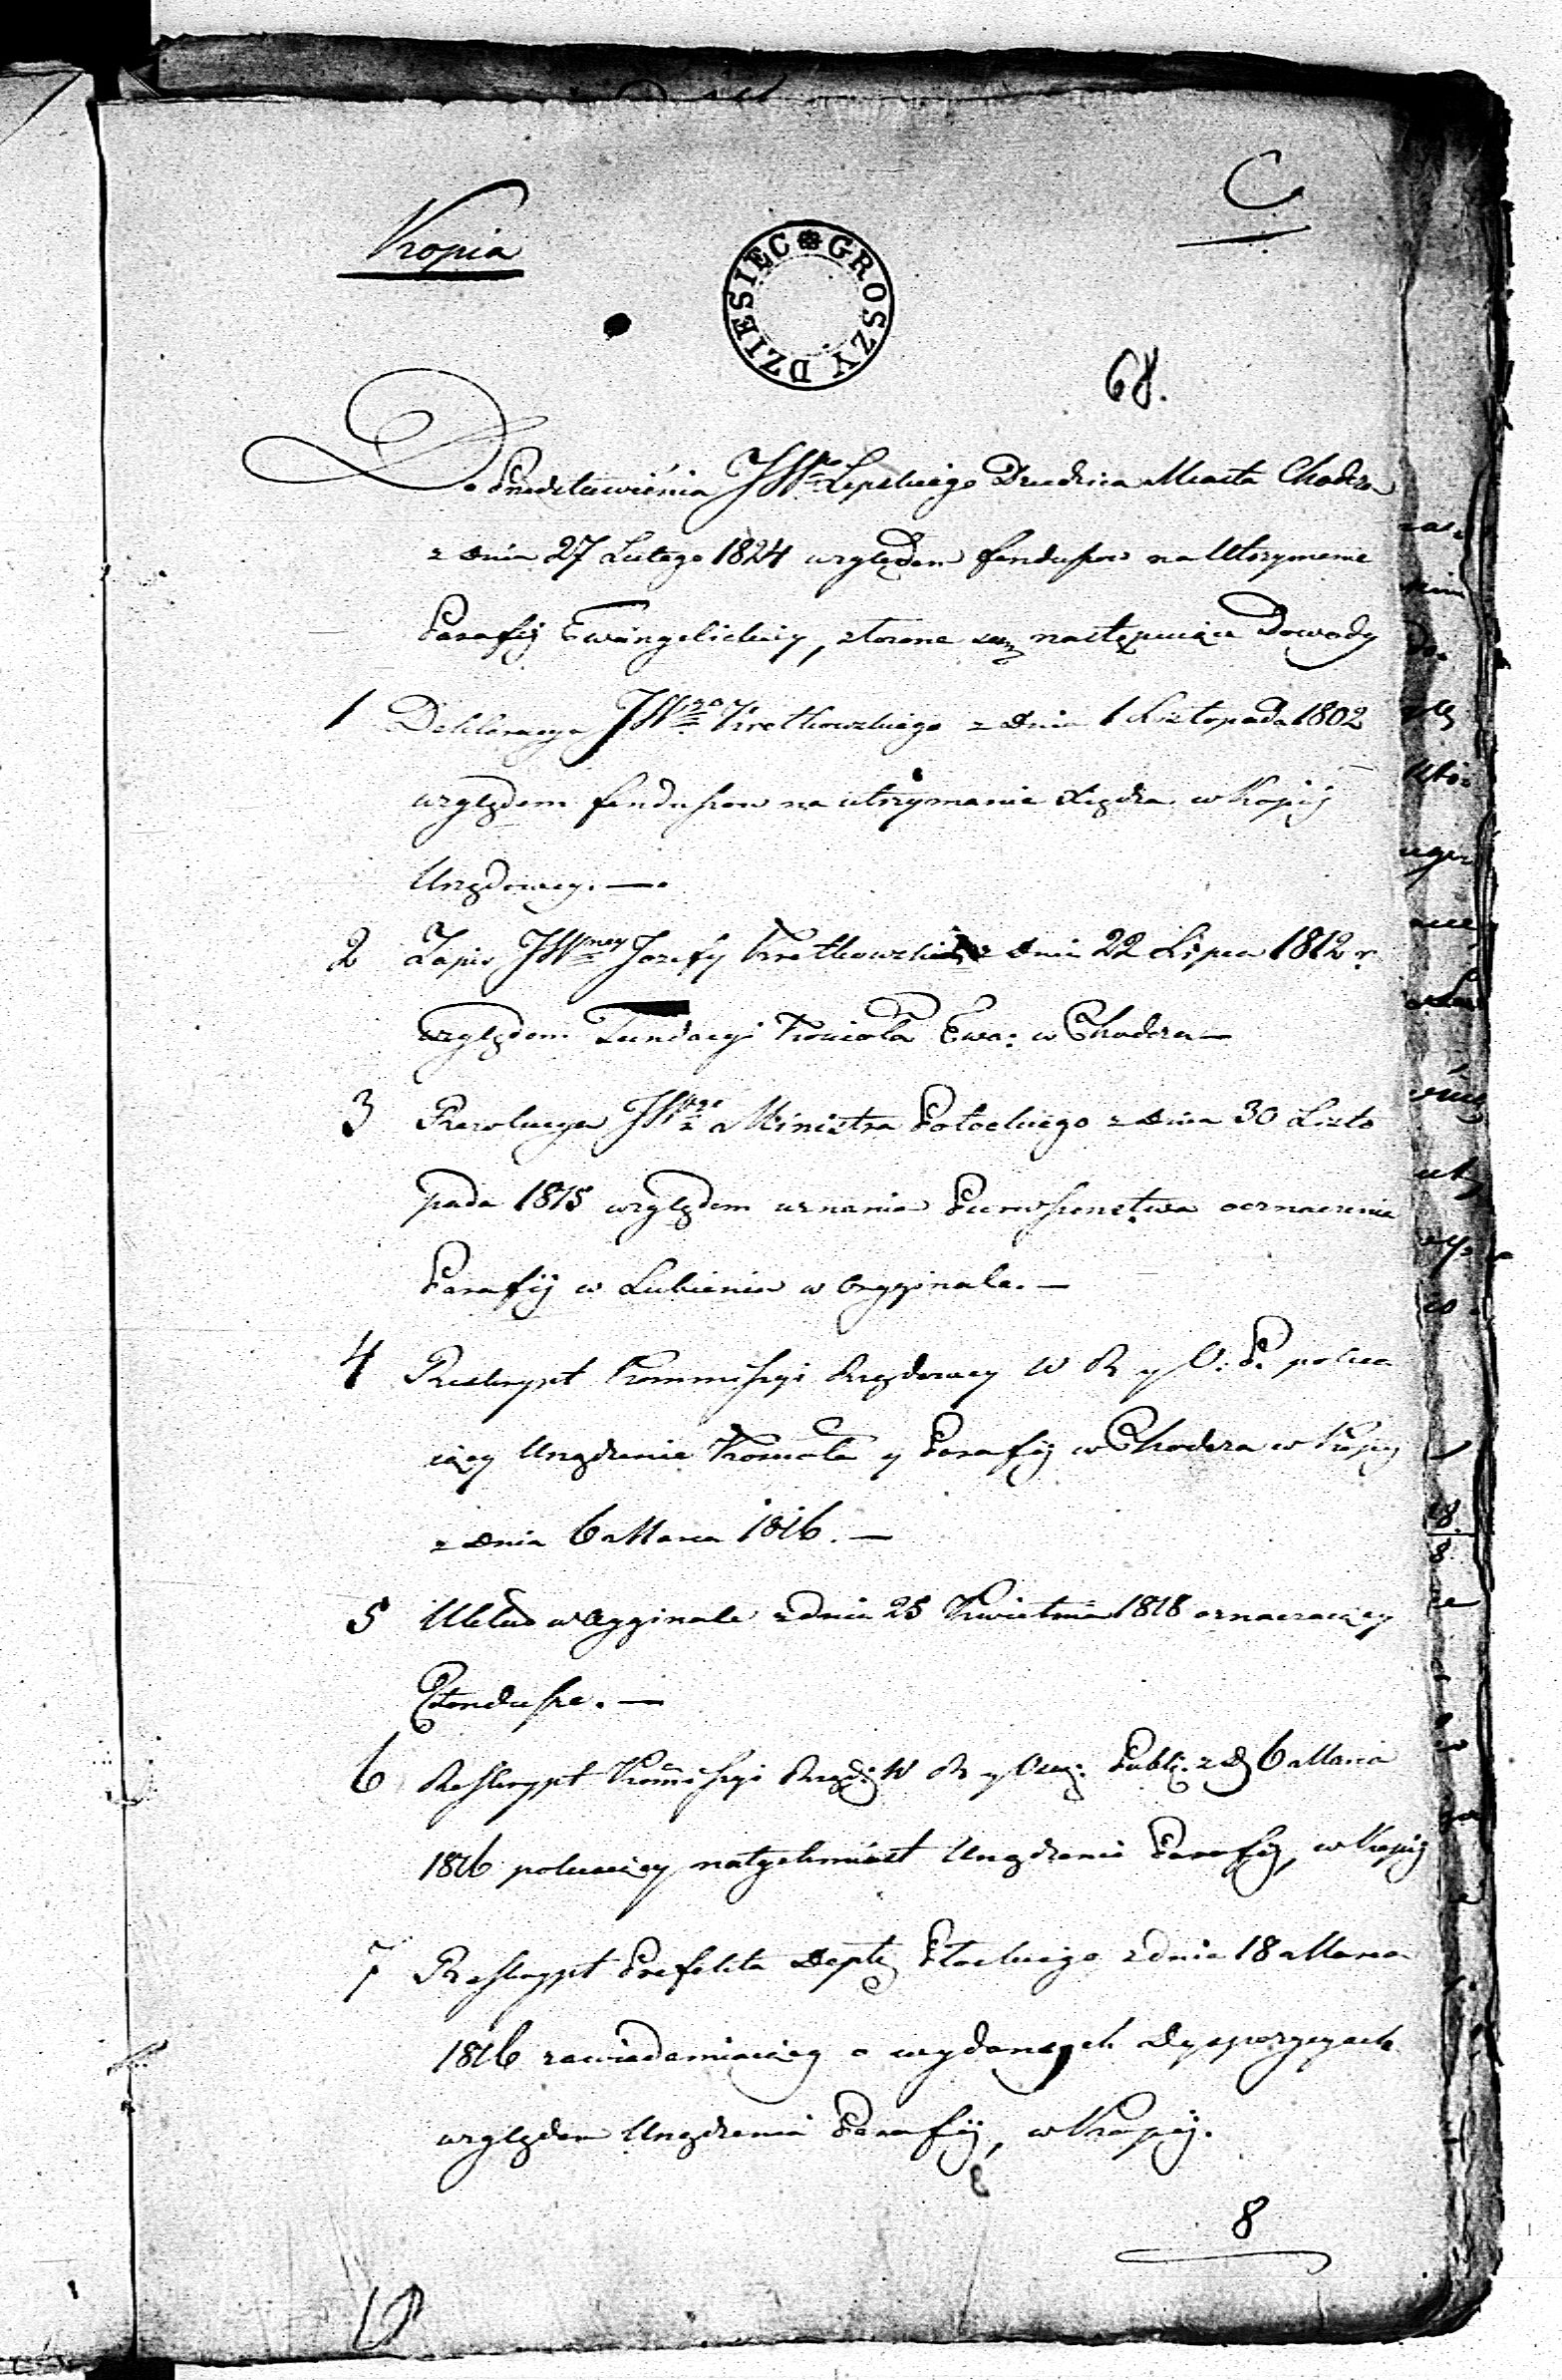 C
Kopia
DZIESIEC GROSZY
68.
Do Przedstawienia JWgo Lepskiego Dziedzica Miasta Chodcza
z dnia 27 Lutego 1824 względem funduszow na Utrzymanie
Parafij Ewangelickiey, złozone są następuiące Dowody
1 Deklaracya JWgo Kretkowskiego z dnia 1 Listopada 1802
względem funduszow na utrzymanie Xiędza w kopij
Urzędowey. —
2 Zapis JWney Jozefy Kretkowskiey z dnia 22 Lipca 1812 r.
względem Fundacyi Kościoła Ewa: w Chodczu —
3 Rezolucya JWgo Ministra Potockiego z dnia 30 Listo
pada 1815 względem uznania Pierwszenstwa oznaczenia
Parafij w Lubieniu w Orygginale. —
4 Reskrypt Kommissyi Rządowey W R y O: P. poleca
iący Urządzenie Kościoła y Parafij w Chodczu w Kopij
z dnia 6 Marca 1816. —
5 Układ w Orygginale z dnia 25 Kwietnia 1818 oznaczaiący
Fundusze. —
6 Reskrypt Kommissyi Rządy W R y Oswy: Publ: z D 6 Marca
1816 polecaiący natychmiast Urządzenie Parafij, w kopij
7 Reskrypt Prefekta Deptu Płockiego z dnia 18 Marca
1816 zawiadamiaiący o wydanych Dyspozycyach
względem Urządzenia Parafij, w Kopij.
8